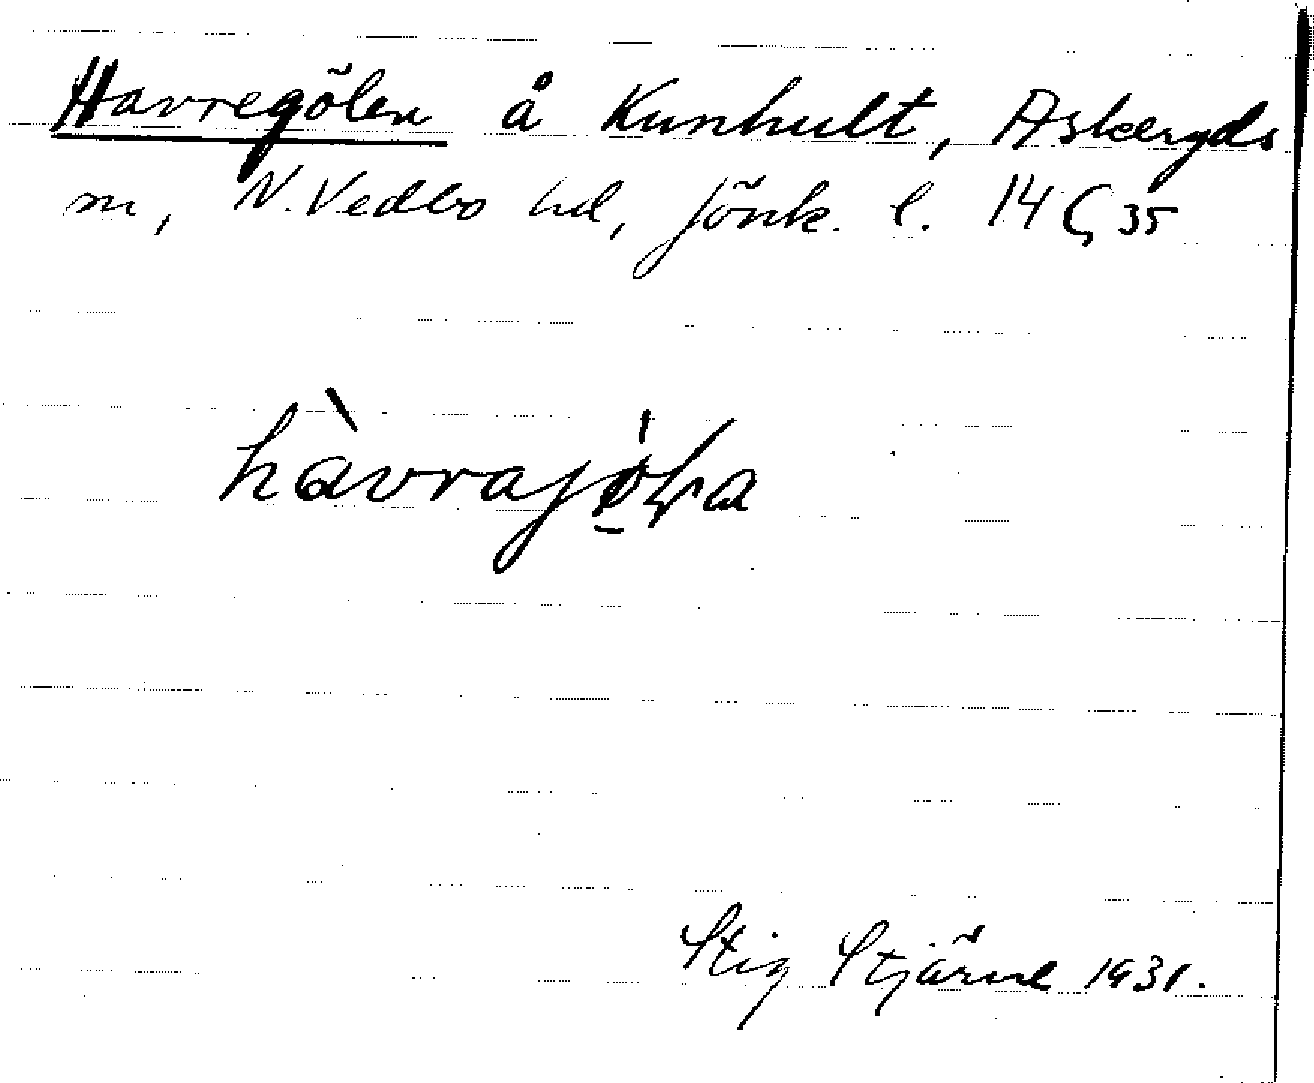 Havregölen å Kunhult, Askeryds
sn, N. Vedbo hd, Jönk. l. 14 ς 35
hàvrajo̱ḷa
Stig Stjärne 1931.